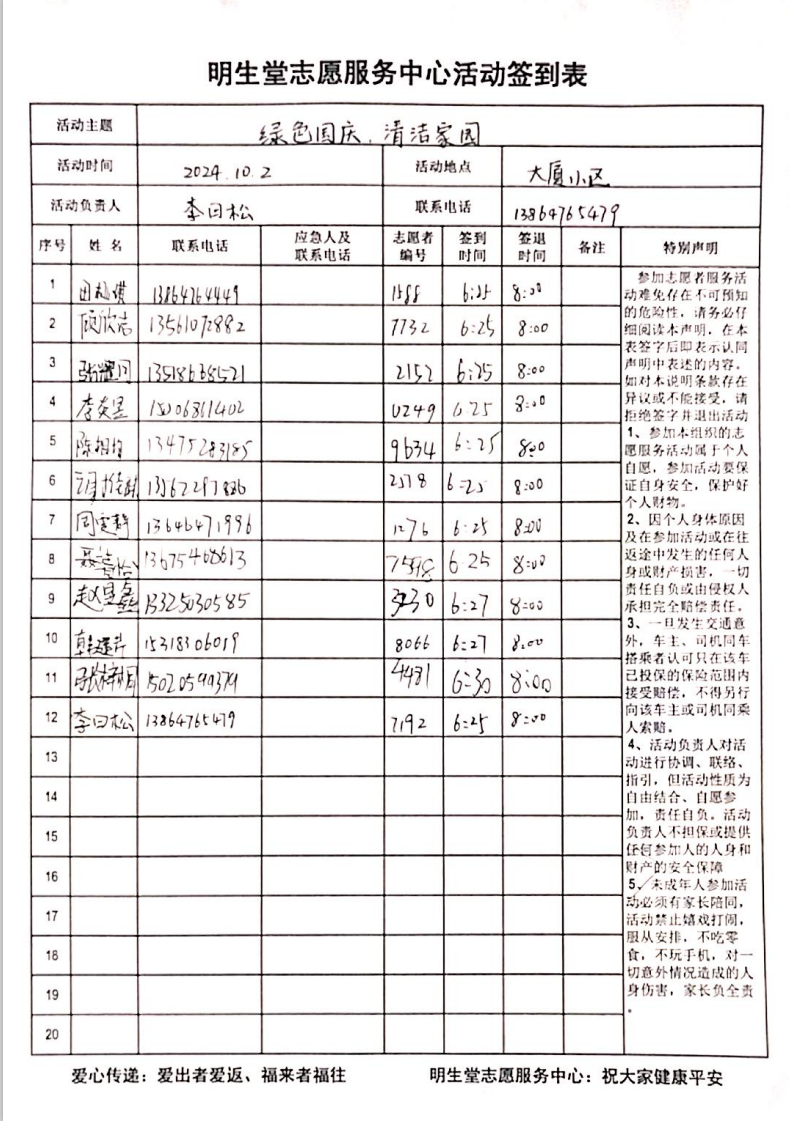 明生堂志愿服务中心活动签到表
活动主题 绿色国庆.清洁家园
活动时间 2024.10.2 活动地点 大厦小区
活动负责人 李曰松 联系电话 13864765479
序号 姓名 联系电话 应急人及联系电话 志愿者编号 签到时间 签退时间 备注 特别声明
1 13864764449 1588 6:25 8:00
2 顾欣洁 13561072882 7732 6:25 8:00
3 张耀同 13518638521 2152 6:25 8:00
4 15006861402 0249 6:25 8:00
5 13475283185 9634 6:25 8:00
6 2578 6:25 8:00
7 13646471996 1276 6:25 8:00
8 13675468613 6:25 8:00
9 赵昱鑫 13325030585 6:27 8:00
10 15318306019 8066 6:27 8:00
11 4481 6:30 8:00
12 李曰松 13864765479 7192 6:25 8:00
13
14
15
16
17
18
19
20
参加志愿者服务活
动难免存在不可预知
的危险性，请务必仔
细阅读本声明，在本
表签字后即表示认同
声明中表述的内容。
如对本说明条款存在
异议或不能接受，请
拒绝签字并退出活动
1、参加本组织的志
愿服务活动属于个人
自愿，参加活动要保
证自身安全，保护好
个人财物。
2、因个人身体原因
及在参加活动或在往
返途中发生的任何人
身或财产损害，一切
责任自负或由侵权人
承担完全赔偿责任。
3、一旦发生交通意
外，车主、司机同车
搭乘者认可只在该车
已投保的保险范围内
接受赔偿，不得另行
向该车主或司机同乘
人索赔。
4、活动负责人对活
动进行协调、联络、
指引，但活动性质为
自由结合、自愿参
加，责任自负。活动
负责人不担保或提供
任何参加人的人身和
财产的安全保障
5、未成年人参加活
动必须有家长陪同，
活动禁止嬉戏打闹，
服从安排，不吃零
食，不玩手机，对一
切意外情况造成的人
身伤害，家长负全责
。
爱心传递：爱出者爱返、福来者福往 明生堂志愿服务中心：祝大家健康平安